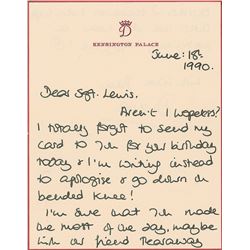 D
KENSINGTON PALACE
June: 18th
1990.
Dear Sgt. Lewis.
Aren't I hopeless?
I totally forgot to send my
card to 7h for your birthday
today & I'm writing instead
to apologise & go down on
bended knee!
I'm sure that 7h made
the most of the day, maybe
with our friend Tearaway